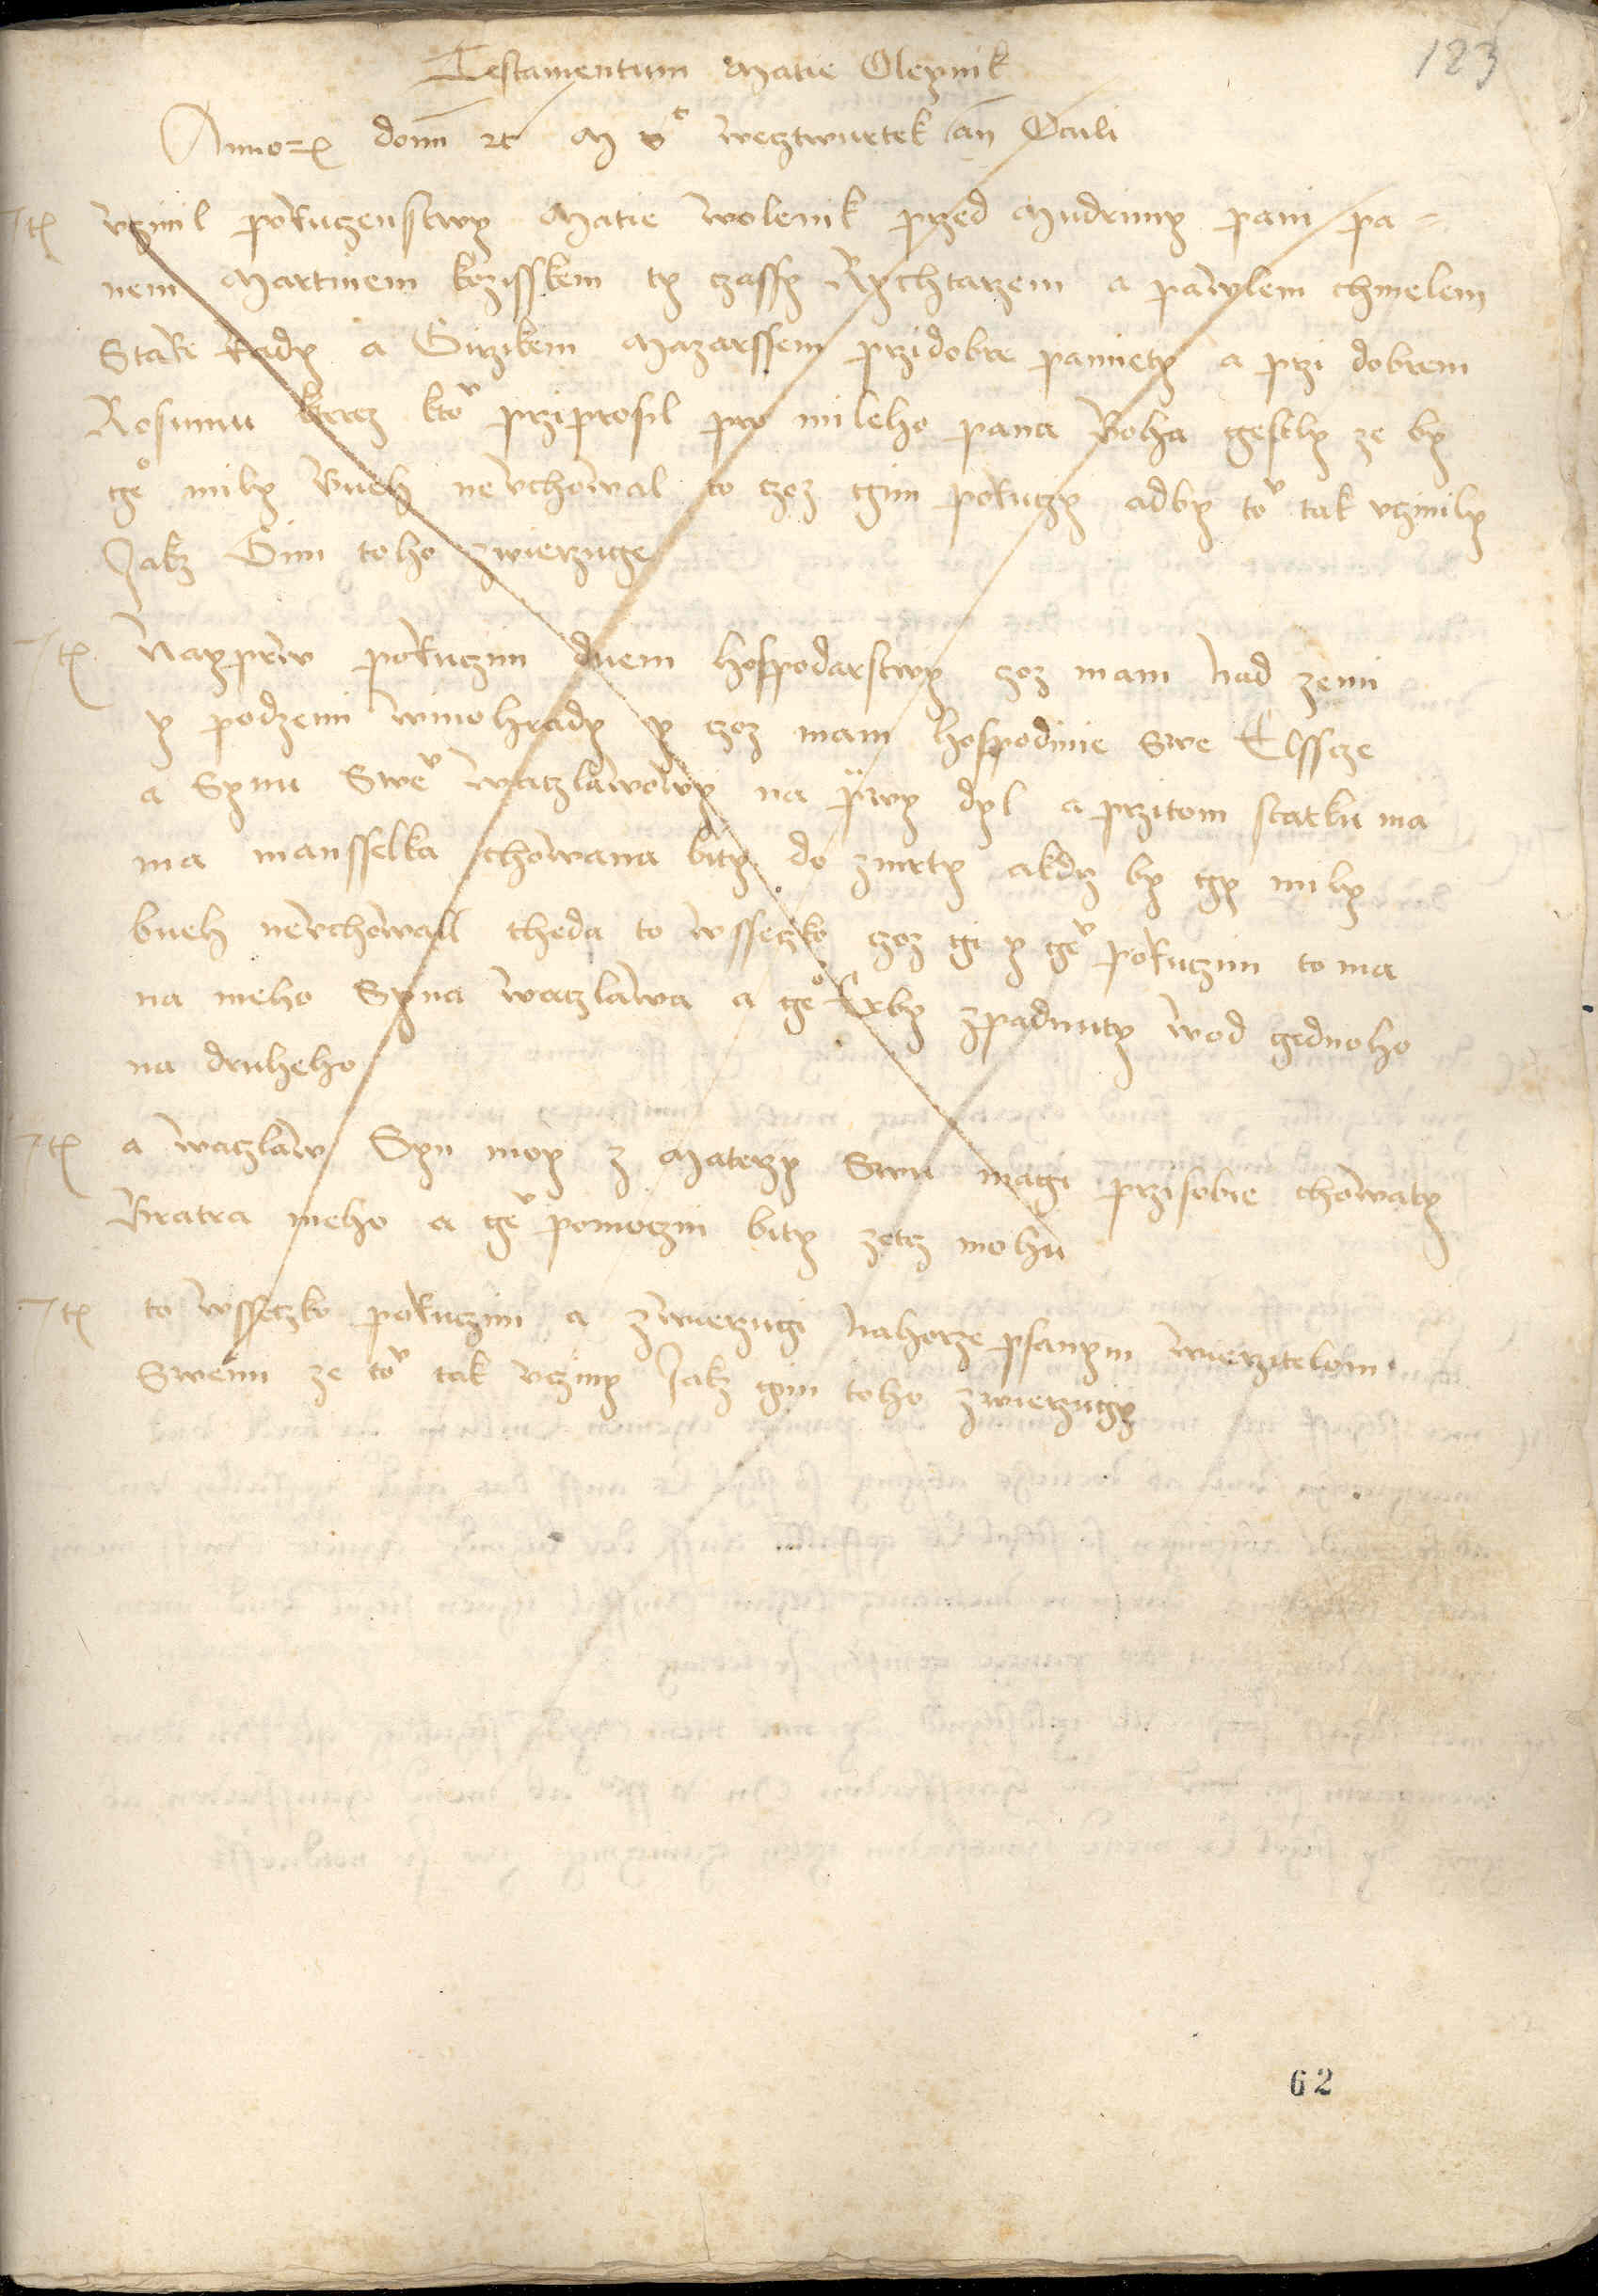 Testamentum Matie Oleynik
123
Anno domī ꝛc M vᶜ wecztwurtek an̄ Oculi
Itē vczinil poruczenstwy Matie wolenik przed Mudrimy pani pa=
nem Martinem kozisskem ty czassy Rychtarzem a pawlem chmelem
Stare Rady a Girzikem Mazarssem przi dobre pamiety a przi dobrem
Rosumu kterz ktoͮ przi prosil pro mileho pana Boha gestly ze by
geͦ mily Bueh nevchowal to czoz gim poruczy adby toͮ tak vczinily
Jakz Gim toho zwierzuge
Itē Nayprw poruczim duem hospodarstwy czoz mam nad zemi
y podzemi winohrady y czoz mam hospodinie Swe Elssce
a Synu Sweͮ waczlawowy na prwy dyl a przitom statku ma
ma mansselka chowana bity do zmrty akdyz by gy mily
bueh nevchowall theda to wsseczko czoz gi y geͮ poruczim to ma
na meho Syna waczlawa a geͦ Erby zpadnuty wod gednoho
na druheho
Itē a waczlaw Syn moy z Materzy Swu magi przisobie chowaty
Bratra meho a geͮ pomoczni bity zetcz mohu
Itē to wsseczko poruczim a zwierzugi nahorze psanym wierzitelom
Swemi ze toͮ tak vcziny Jakz gim toho zwierzugy
62